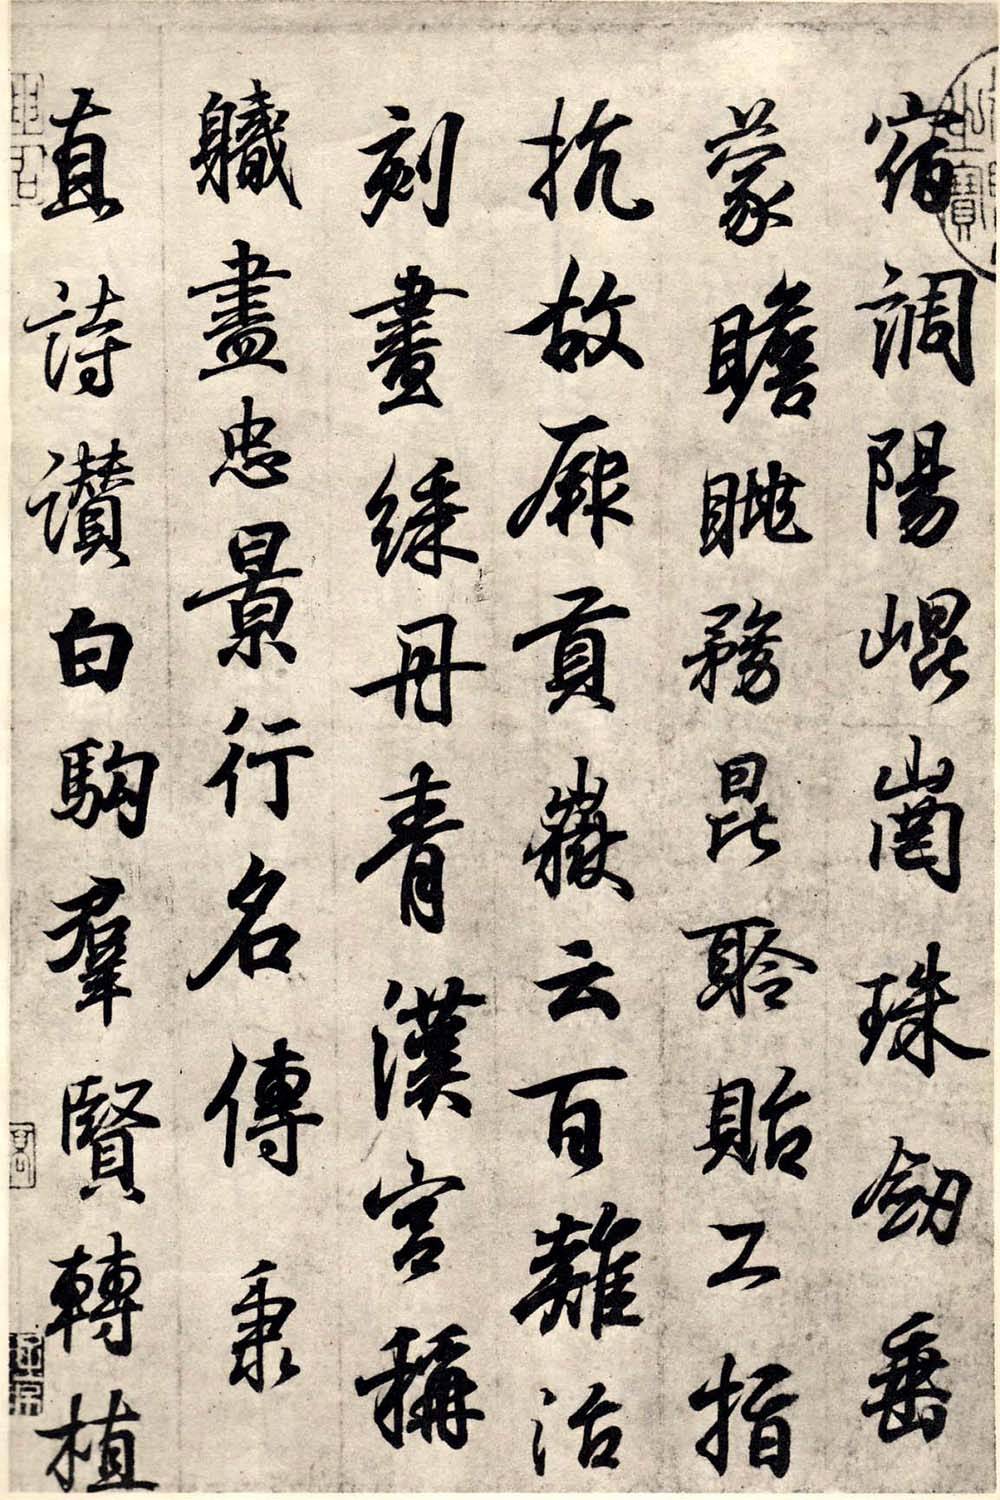 宿調陽崐崗珠劒垂
蒙瞻眺務昆聆貽工指
抗故厥貢嶽云百離治
刻畫綵丹青漢宮稱
職盡忠景行名傳秉
直詩讃白駒羣賢轉植
寶